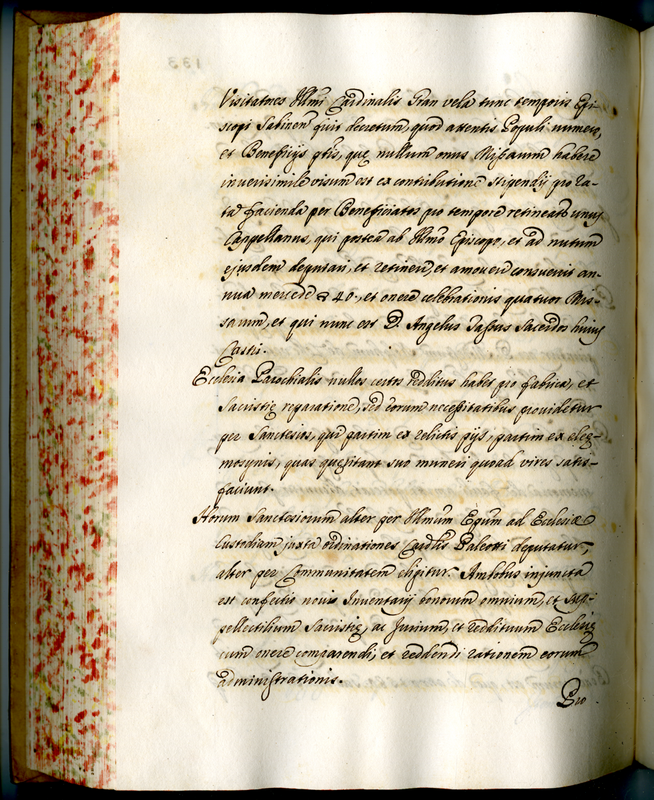 Visitatores Illmi Cardinalis Gran vela tunc temporis Epi-
scopi Sabinen quis decretum, quod attentis Populi numero,
et Beneficijs qtis, quę nullum onus Missarum habere
inuerisimile visum est ex contributione stipendij pro ra-
ta facienda per Beneficiatos pro tempore retineatr unus
Cappellanus, qui postea ab Illmo Episcopo, et ad nutum
ejusdem deputari, et retineri, et amoueri consueuit an-
nua mercede 40., et onere celebrationis quatuor Mis-
sarum, et qui nunc est D. Angelus Tassus Sacerdos huius
Castri.
Ecclesia Parochialis nullos certos redditus habet pro fabrica, et
Sacristię reparatione, sed eorum necessitatibus prouidetur
per Sanctesios, qui partim ex relictis pijs, partim ex elee-
mosynis, quas quęsitant suo muneri quoad vires satis-
faciunt.
Horum Sanctesiorum alter per Illmum Epum ad Ecclesiæ
Custodiam juxta ordinationes Cardlis Paleotti deputatur,
alter per Communitatem eligitur. Ambobus injuncta
est confectio noui Inventarij bonorum omnium, et sup-
pellectilium Sacristię, ac Jurium, et reddituum Ecclesię
cum onere comparendi, et reddendi rationem eorum
administrationis.
Pro
133